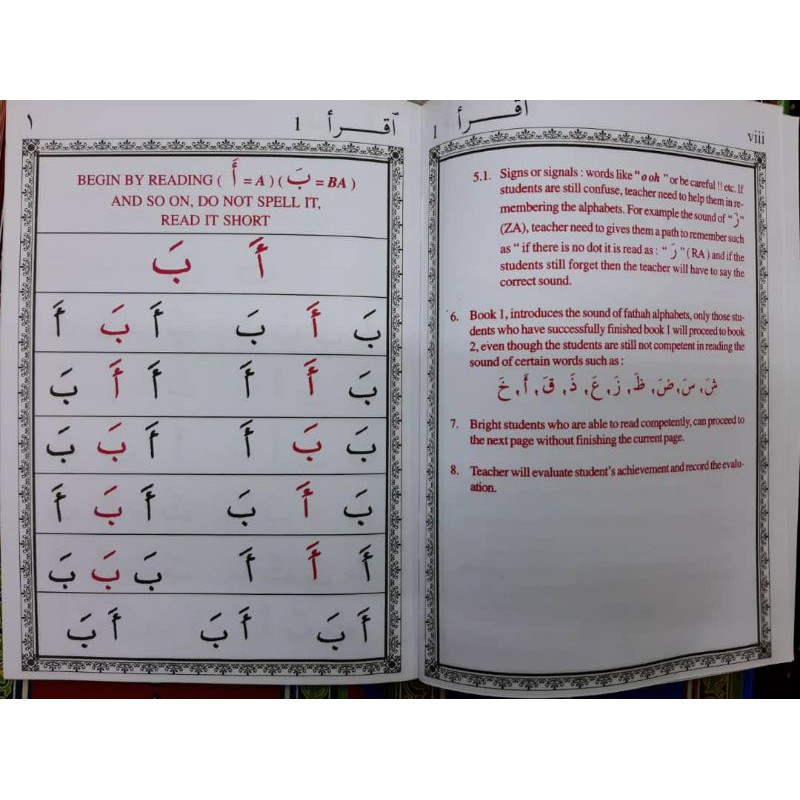 اقرأ 1 viii
5.1. Signs or signals : words like "o oh" or be careful !! etc. If
students are still confuse, teacher need to help them in re-
membering the alphabets. For example the sound of " زَ "
(ZA), teacher need to gives them a path to remember such
as " if there is no dot it is read as : " رَ " (RA) and if the
students still forget then the teacher will have to say the
correct sound.
6. Book 1, introduces the sound of fathah alphabets, only those stu-
dents who have successfully finished book 1 will proceed to book
2, even though the students are still not competent in reading the
sound of certain words such as :
شَ, سَ, ضَ, ظَ, زَ, عَ, ذَ, قَ, أَ, خَ
7. Bright students who are able to read competently, can proceed to
the next page without finishing the current page.
8. Teacher will evaluate student's achievement and record the evalu-
ation.
اقرأ 1 ١
BEGIN BY READING ( أَ = A ) ( بَ = BA )
AND SO ON, DO NOT SPELL IT,
READ IT SHORT
أَ بَ
بَ أَ بَ أَ بَ أَ
بَ أَ أَ أَ أَ بَ
بَ بَ أَ أَ بَ بَ
بَ أَ بَ أَ بَ أَ
أَ أَ أَ بَ بَ بَ
أَ بَ أَ بَ أَ بَ